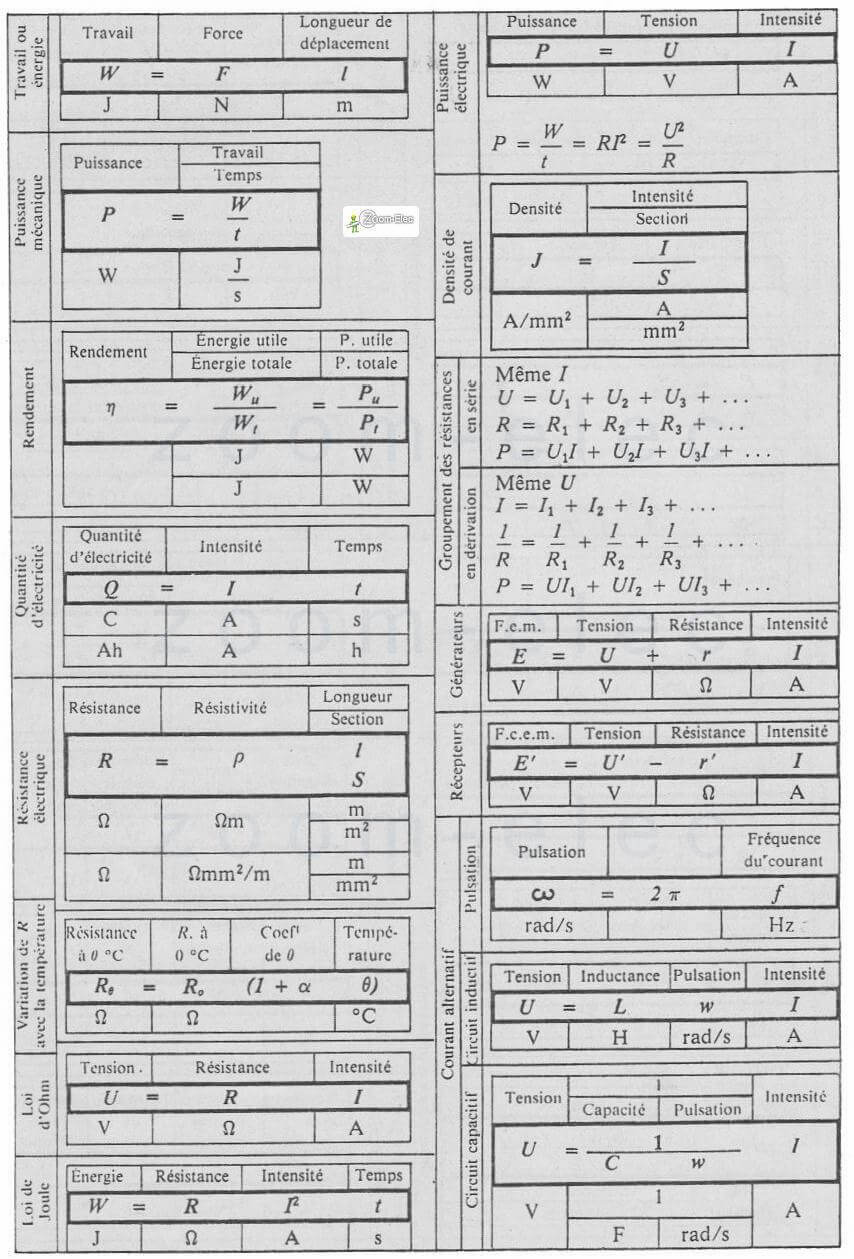 Travail ou énergie
Travail Force Longueur de déplacement
W = F l
J N m
Puissance mécanique
Puissance Travail
Temps
P = W
t
W J
s
Zoom-Elec
Rendement
Rendement Énergie utile P. utile
Énergie totale P. totale
η = Wu = Pu
Wt Pt
J W
J W
Quantité d'électricité
Quantité d'électricité Intensité Temps
Q = I t
C A s
Ah A h
Résistance électrique
Résistance Résistivité Longueur
Section
R = ρ l
S
Ω Ωm m
m²
Ω Ωmm²/m m
mm²
Variation de R avec la température
Résistance R. à Coeft Tempé-
à θ °C 0 °C de θ rature
Rθ = Ro (1 + α θ)
Ω Ω °C
Loi d'Ohm
Tension. Résistance Intensité
U = R I
V Ω A
Loi de Joule
Énergie Résistance Intensité Temps
W = R I² t
J Ω A s
Puissance électrique
Puissance Tension Intensité
P = U I
W V A
P = W/t = RI² = U²/R
Densité de courant
Densité Intensité
Section
J = I
S
A/mm² A
mm²
Groupement des résistances
en série
Même I
U = U₁ + U₂ + U₃ + ...
R = R₁ + R₂ + R₃ + ...
P = U₁I + U₂I + U₃I + ...
en dérivation
Même U
I = I₁ + I₂ + I₃ + ...
1/R = 1/R₁ + 1/R₂ + 1/R₃ + ...
P = UI₁ + UI₂ + UI₃ + ...
Générateurs
F.e.m. Tension Résistance Intensité
E = U + r I
V V Ω A
Récepteurs
F.c.e.m. Tension Résistance Intensité
E' = U' − r' I
V V Ω A
Courant alternatif
Pulsation
Pulsation Fréquence
du courant
ω = 2 π f
rad/s Hz
Circuit inductif
Tension Inductance Pulsation Intensité
U = L w I
V H rad/s A
Circuit capacitif
Tension 1 Intensité
Capacité Pulsation
U = 1 I
C w
V 1 A
F rad/s
zoom-elec
zoom-elec
zoom-elec